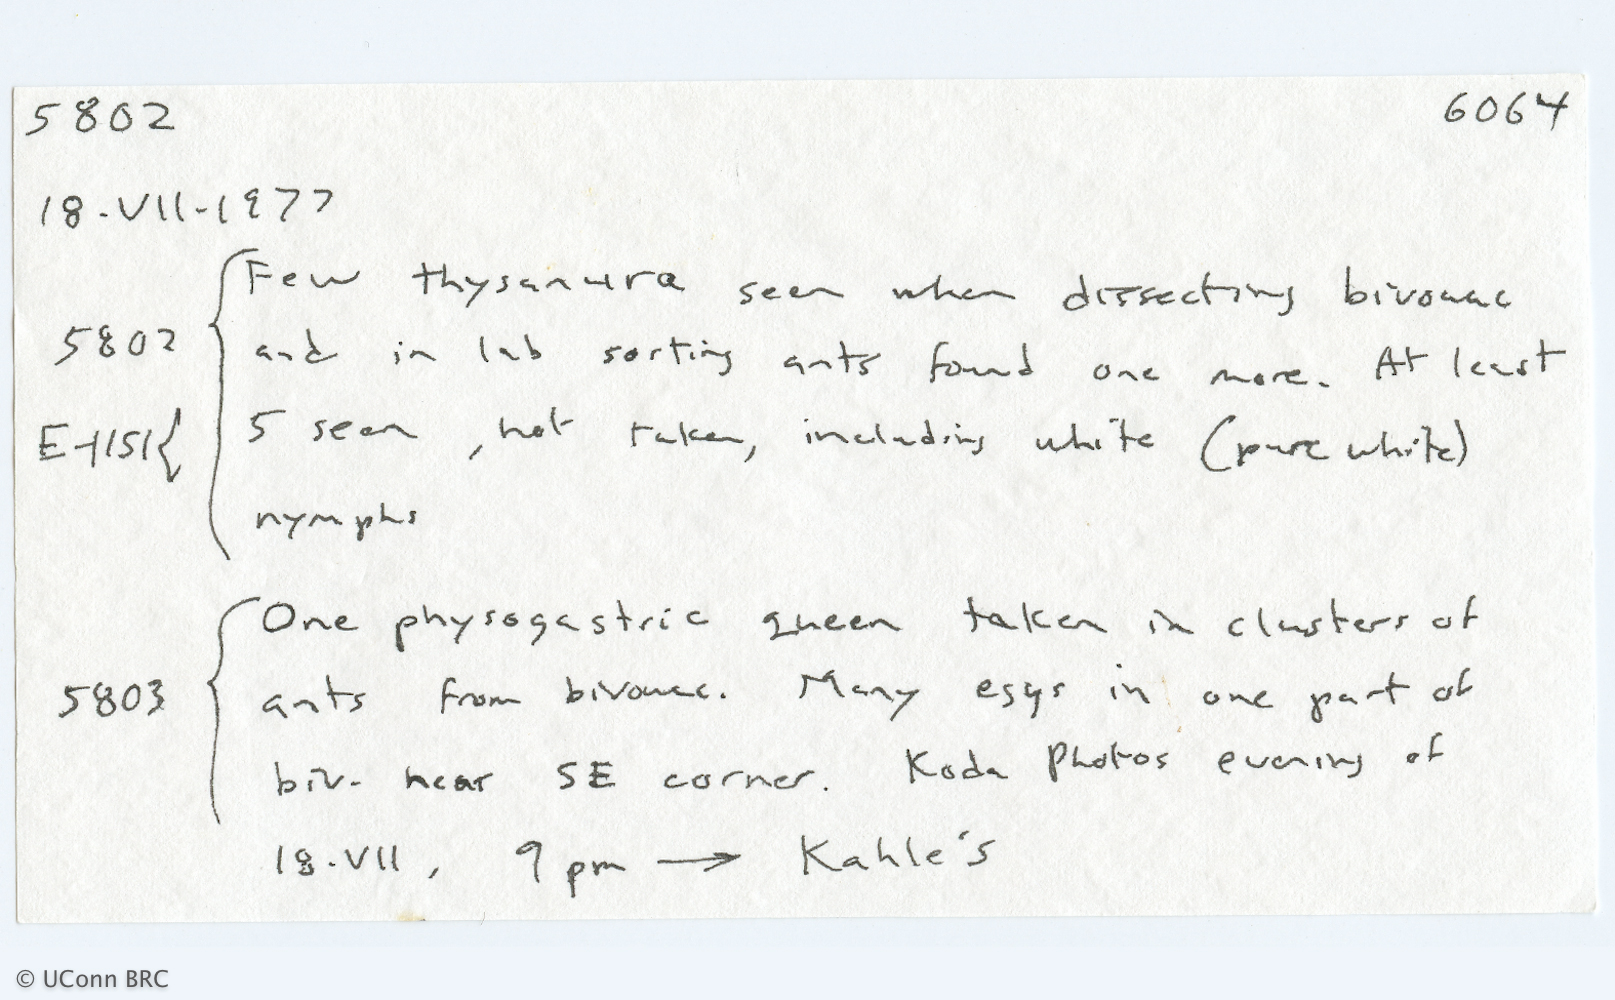 5802 6064
18-VII-1977
Few thysanura seen when dissecting bivouac
5802 and in lab sorting ants found one more. At least
E-1151 5 seen, not taken, including white (pure white)
nymphs
One physogastric queen taken in clusters of
5803 ants from bivouac. Many eggs in one part of
biv. near SE corner. Koda Photos evening of
18-VII, 9 pm → Kahle's
© UConn BRC